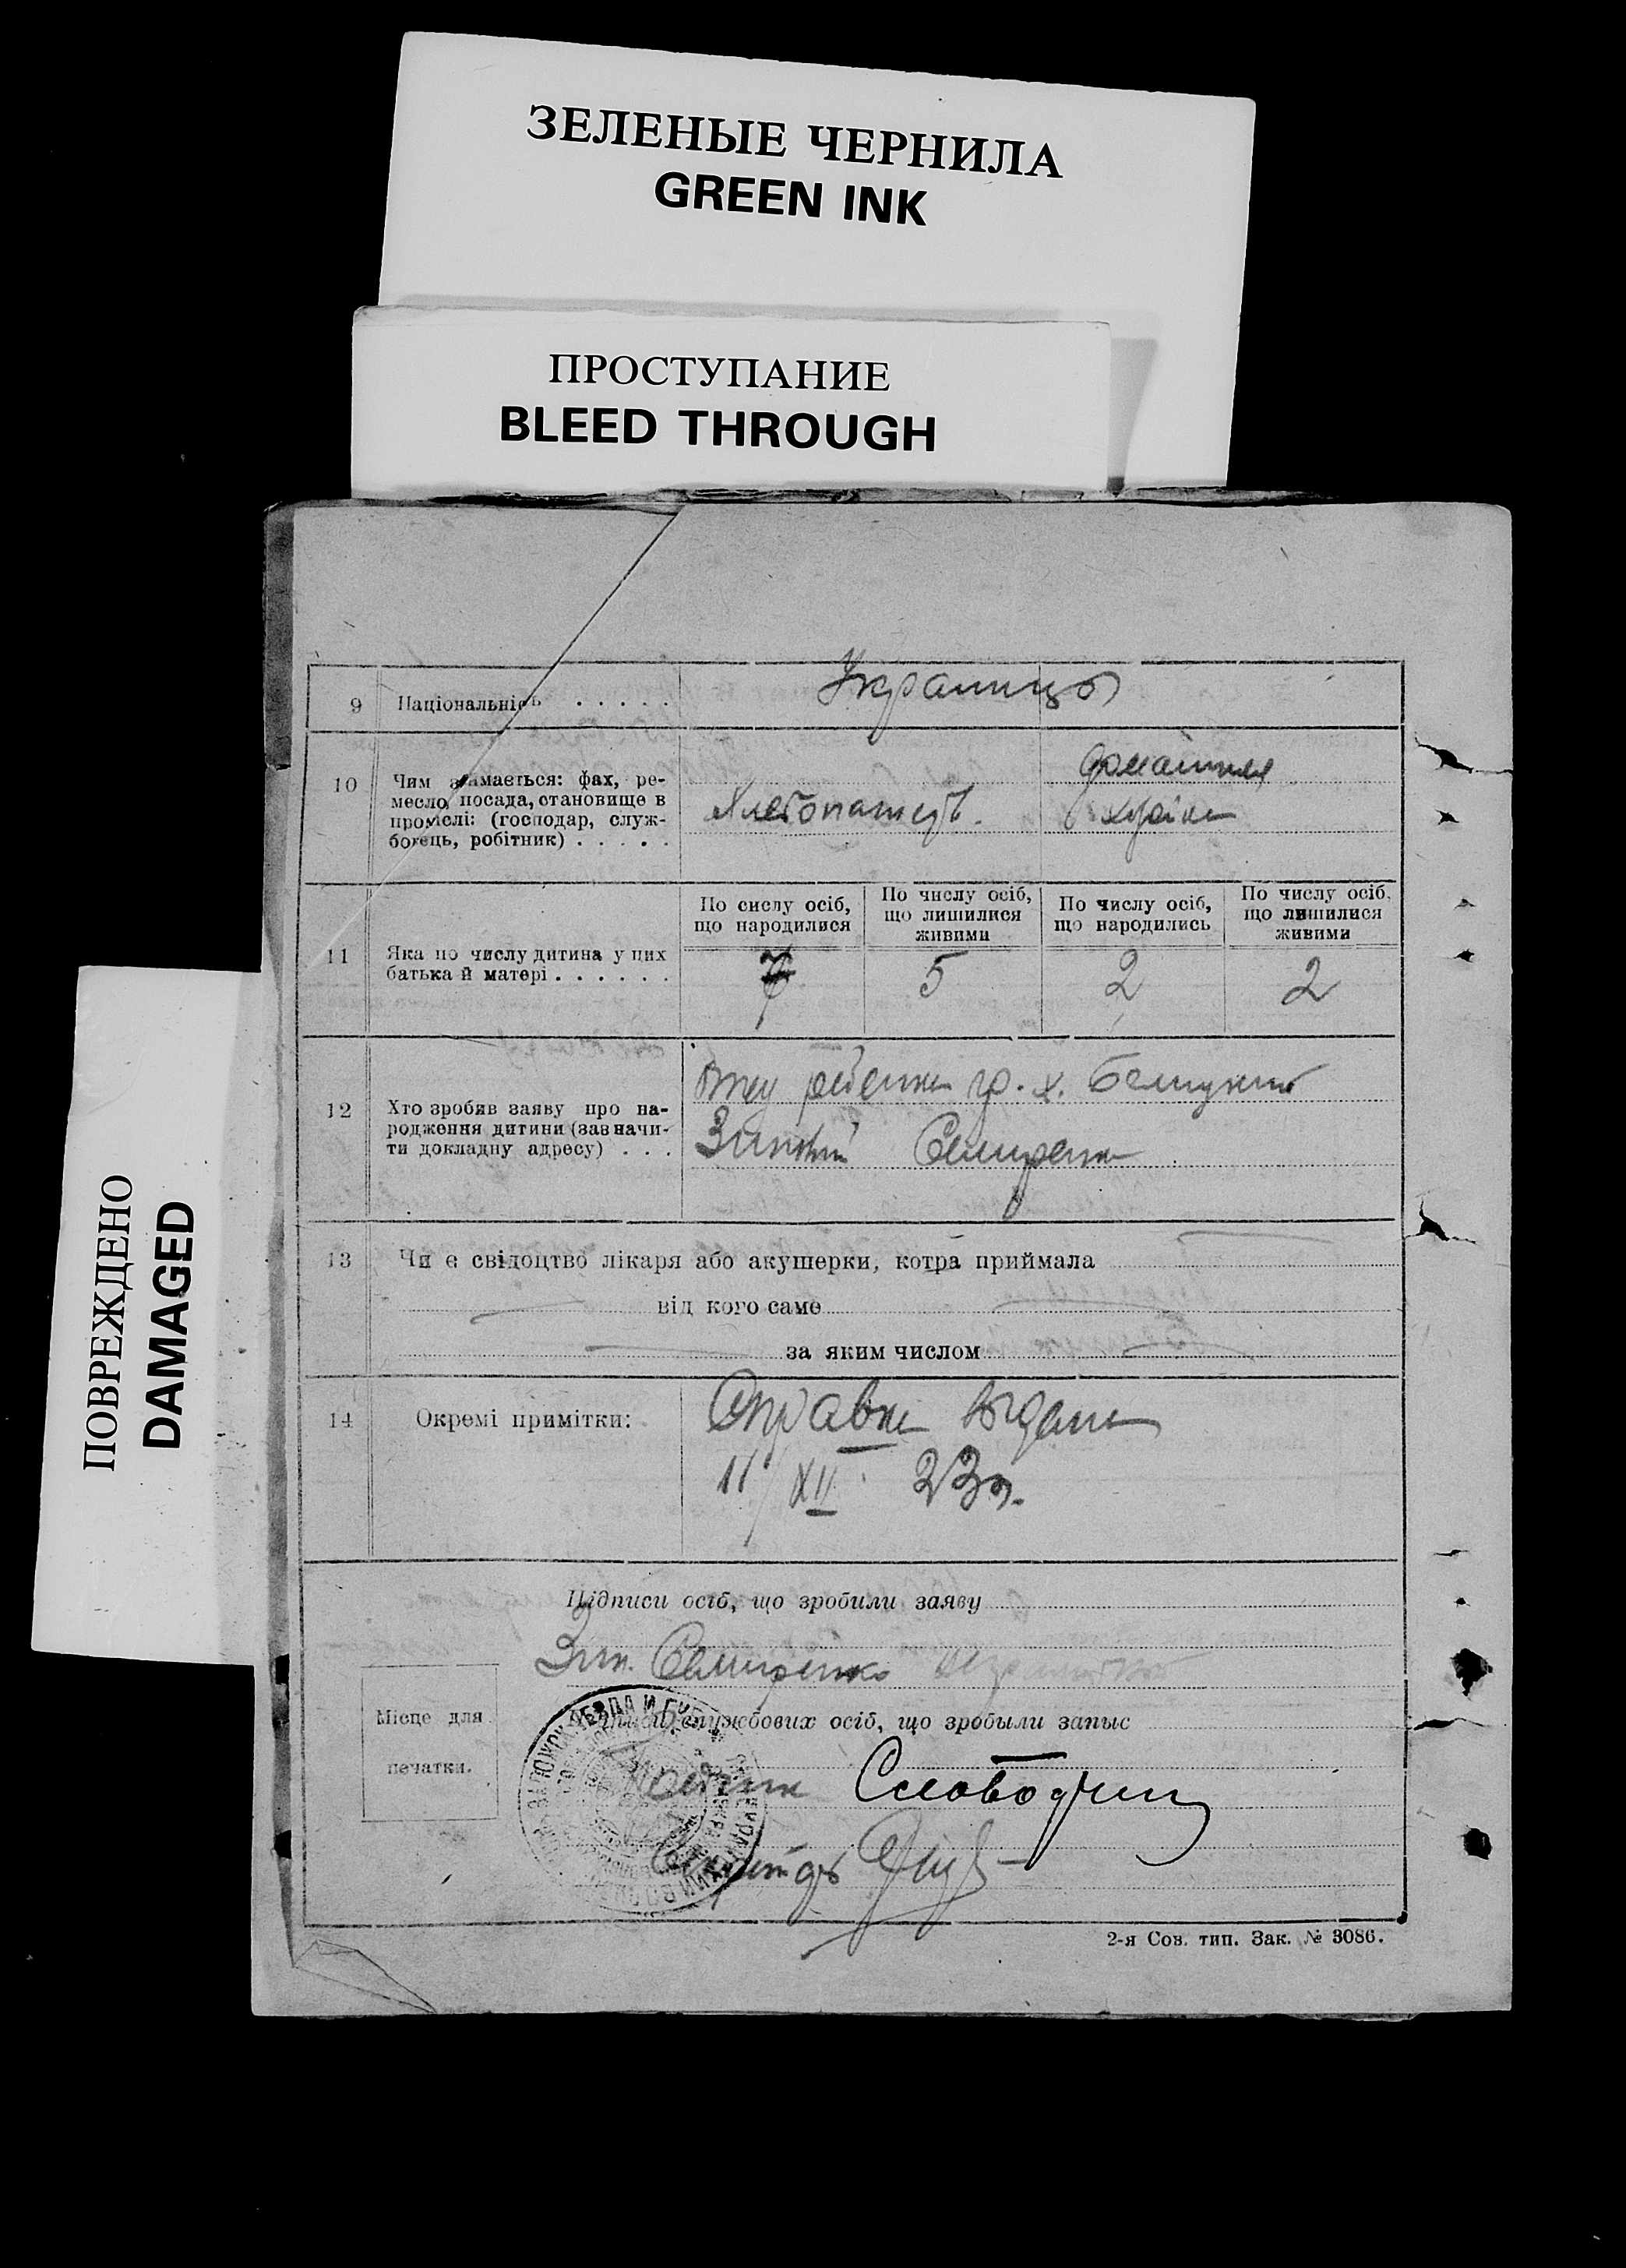 ЗЕЛЕНЫЕ ЧЕРНИЛА
GREEN INK
ПРОСТУПАНИЕ
BLEED THROUGH
ПОВРЕЖДЕНО
DAMAGED
9 Національнісь . . . . .
Украинцы
10 Чим займається: фах, ре-
месло, посада, становище в
промислі: (господар, служ-
бовець, робітник) . . . . .
Хлебопашець.
домашняя
11 Яка по числу дитина у цих
батька й матері . . . . . .
По сислу осіб,
що народилися
По числу осіб,
що лишилися
живими
По числу осіб,
що народились
По числу осіб,
що лишилися
живими
5 2 2
12 Хто зробив заяву про на-
родження дитини (зазначи-
ти докладну адресу) . . .
Отец ребенка гр. х.
Семиренко
13 Чи є свідоцтво лікаря або акушерки, котра приймала
від кого саме
за яким числом
14 Окремі примітки:
Справка выдана
11/XII 23 г.
Підписи осіб, що зробили заяву
Зин. Семиренко
Місце для
печатки.
службових осіб, що зробыли запыс
Слободян
2-я Сов. тип. Зак. № 3086.